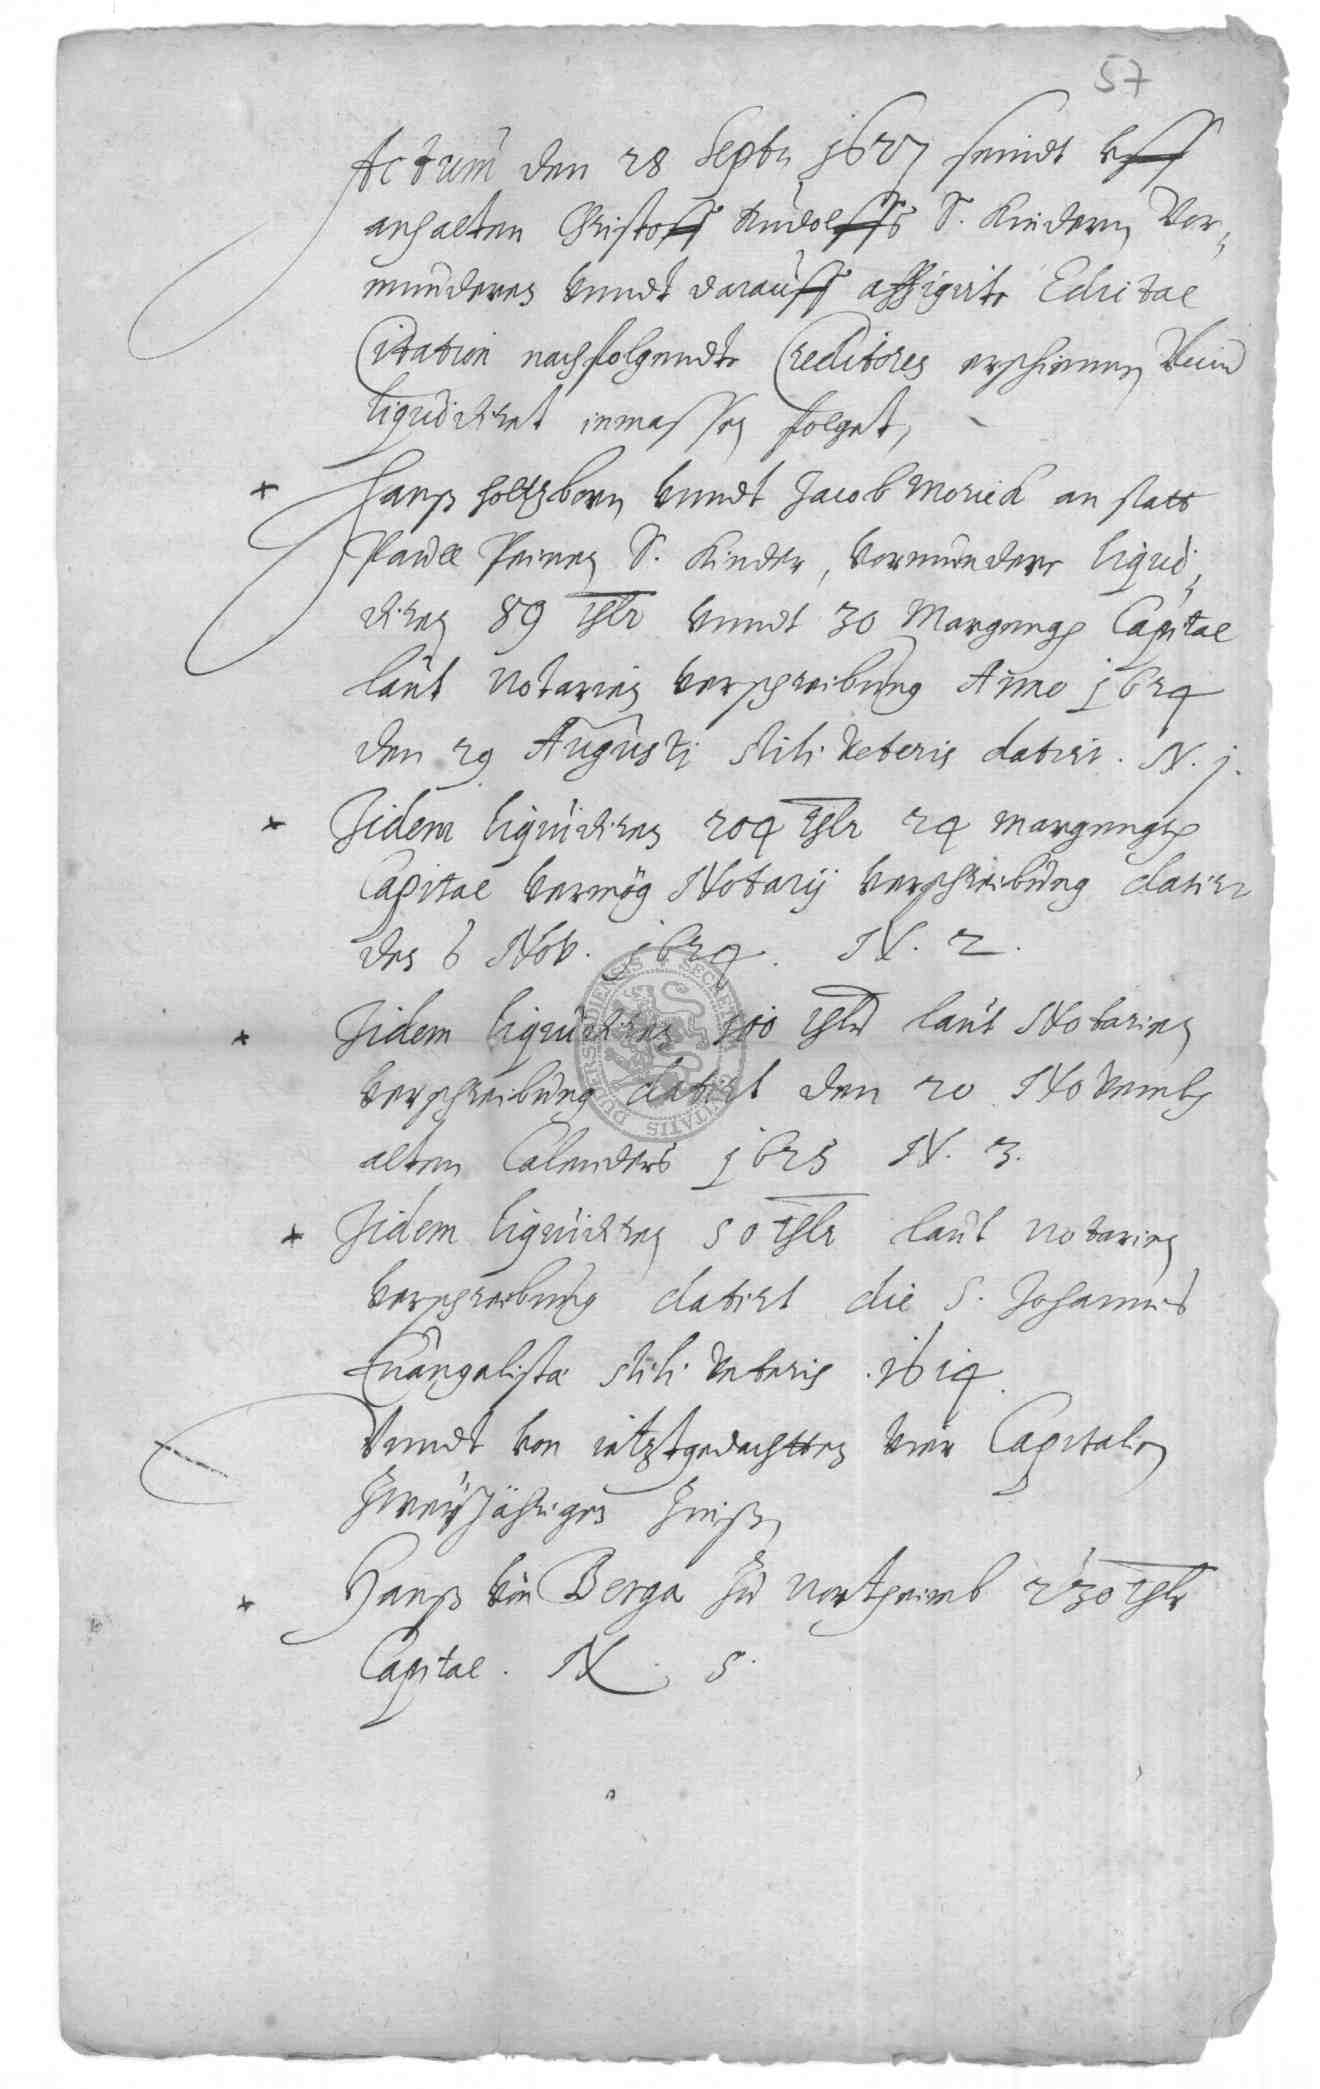 57
Actum den 28 Septb 1627 seindt vff
anhalten Christoff Rudolffs S. Kindern Vor¬
munderen vnndt darauff affigirte Edictae
Citation nachfolgendte Creditores erschienen Vnnd
liquidiret inmassen folget,
Hanß Holtzborn vnndt Jacob Morich an statt
Pawll Peinen S. Kinder, vormundere liqui¬
diren 89 Thlr vnndt 30 Margengr Capitael
laut Notarien verschreibung Anno 1624
den 29 Augusti stili veteris datirt. N. j.
Iidem liquidiren 204 Thlr 24 Margengr
Capitael vermög Notarij verschreibung datirt
des 6 Nov. 1624. N. 2.
Iidem liquidiren 100 Thlr laut Notarien
verschreibung datirt den 20 Novemb
alten Calenders 1625 N. 3.
Iidem liquidiren 50 Thlr laut Notarien
verschreibung datirt die S. Johannis
Euangelistæ stili veteris 1614.
Vnndt von itztgedachtten vier Capitalien
Zweyjähriges Zinß,
Hanß von Berga zu Northeimb 230 Thlr
Capitael. N. 5.